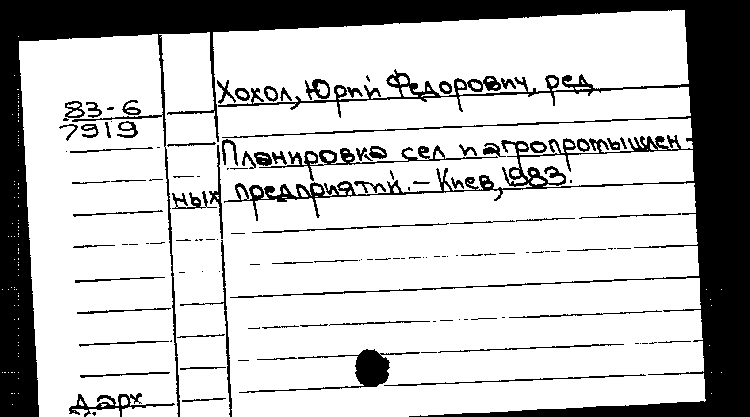 Хохол, Юрий Федорович, ред.
83-6
7919
Планировка сел и агропромышлен-
ных предприятий. – Киев, 1983.
д. арх